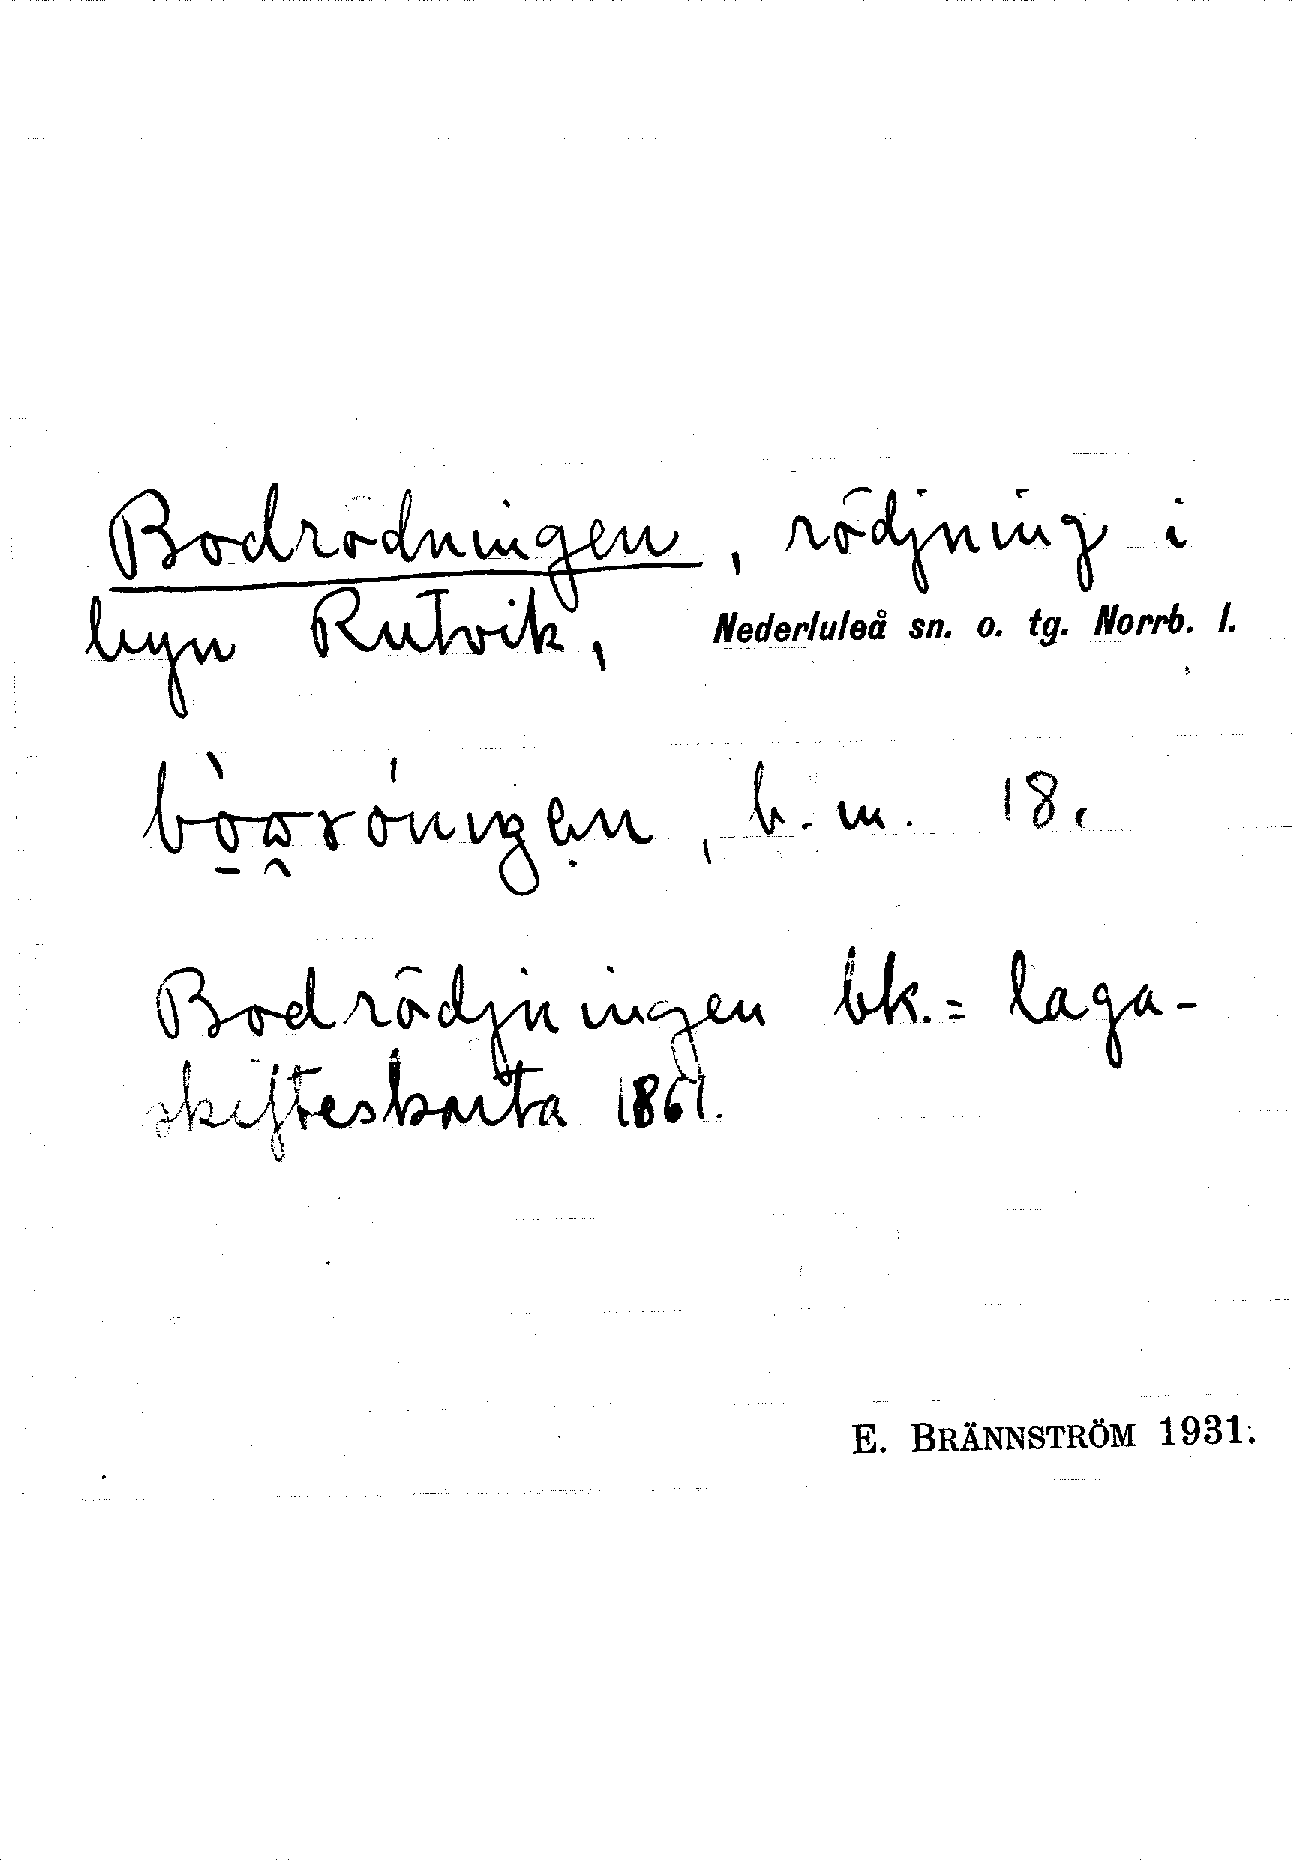 Bodrödningen, rödjning i
byn Rutvik, Nederluleå sn. o. tg. Norrb. l.
b. m. 18.
Bodrödjningen bk. = laga-
skifteskarta 1861.
E. BRÄNNSTRÖM 1931.